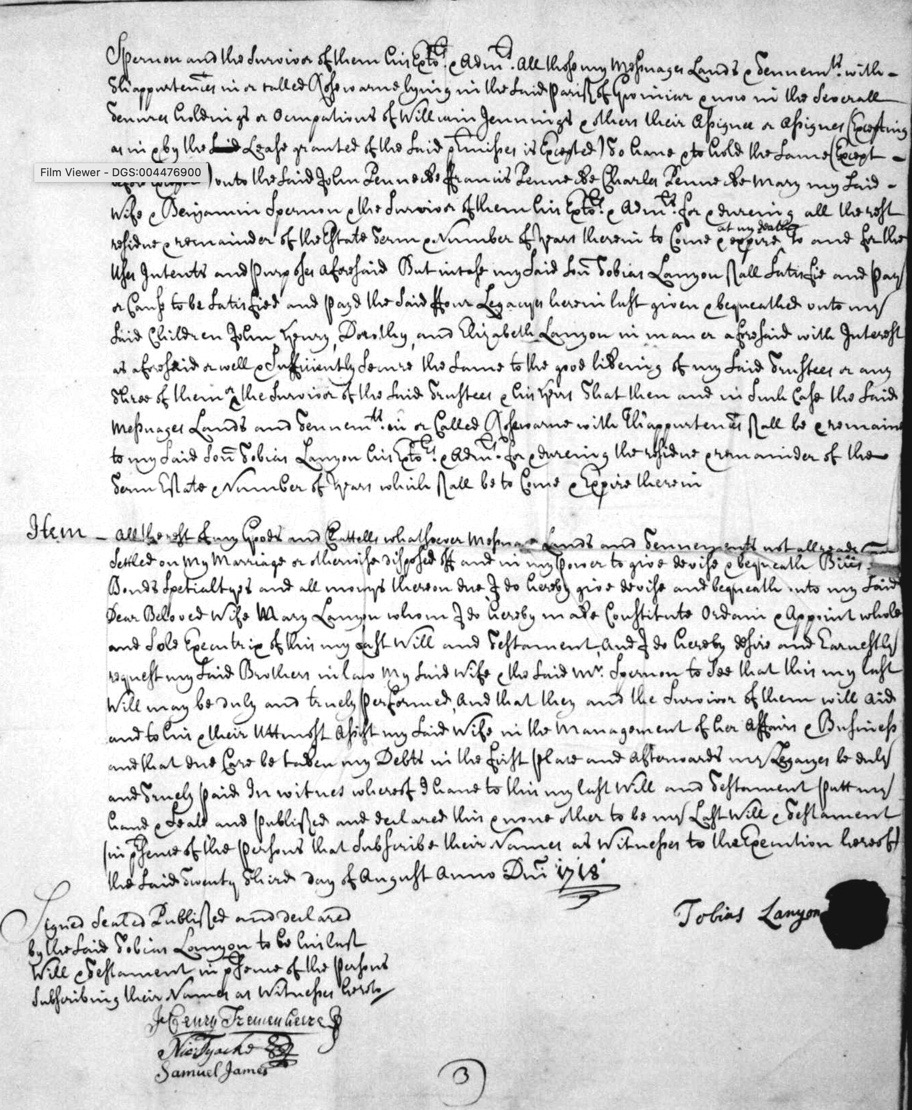 Spernon and the Survivor of them his Extors & Admrs All those my Messuages Lands & Tennemts with
Th'appurtencs in or called Rosewarne lying in the said Parish of Gwiniar & now in the severall
Tenures holdings or Occupations of William Jennings & others their Assignee or Assignes (Excepting
as in & by the said Lease granted of the said Pmisses is Excepted) To have & to hold the same (Except
Film Viewer - DGS:004476900
before Excepted) unto the said John Pennecke Francis Pennecke Charles Pennecke Mary my said
Wife & Benjamin Spernon & the Survivor of them his Extors & Admrs for & dureing all the rest
at my death
residue & remainder of the Estate Term & Number of Years therein to Come & expire To and for the
Uses Intents and Purposes aforesaid But in case my said Son Tobias Lanyon shall Satisfie and pay
or Cause to be Satisfied and payd the said ffour Legacyes herein last given & bequeathed unto my
said Children John Henry, Dorothy, and Elizabeth Lanyon in maner aforesaid with Interest
as aforesaid or well & Sufficiently Secure the Same to the good likeing of my said Trustees or any
Three of them or the Survivor of the said Trustees & his heirs That then and in Such Case the said
Messuages Lands and Tennemts in or Called Rosewarne with Th'appurtencs shall be & remaine
to my said Son Tobias Lanyon his Extors & Admrs for & dureing the residue & remainder of the
Term Estate & Number of Years which shall be to Come & Expire therein
Item - All the rest of my Goods and Chattells whatsoever Messuages Lands and Tennements not allready
Settled on my Marriage or otherwise disposed off and in my power to give devise & bequeath Bills
Bonds Specialtyes and all monys thereon due I do hereby give devise and bequeath unto my said
Dear Beloved Wife Mary Lanyon whom I do hereby make Constitute Ordain & Appoint whole
and Sole Executrix of this my last Will and Testament, And I do hereby desire and Earnestly
request my said Brothers in law my said Wife & the said Mr. Spernon to See that this my last
Will may be duly and truely Performed, And that they and the Survivor of them will aid
and to his & their Uttmost Assist my said Wife in the Management of her Affairs & Business
and that due Care be taken my Debts in the first place and Afterwards my Legacyes be duly
and Truely paid In witness whereof I have to this my last Will and Testament putt my
hand & Seale and Published and declared this & none other to be my Last Will & Testament
(in pSence of the Persons that Subscribe their Names as Witnesses to the Execution hereof)
the said Twenty Third day of August Anno Dni 1718
Tobias Lanyon
Signed Sealed Published and declared
by the said Tobias Lanyon to be his last
Will & Testament in pSence of the Persons
Subscribing their Names as Witnesses hereto
Henry Tremenheere
Nic: Tyacke
Samuel James
3